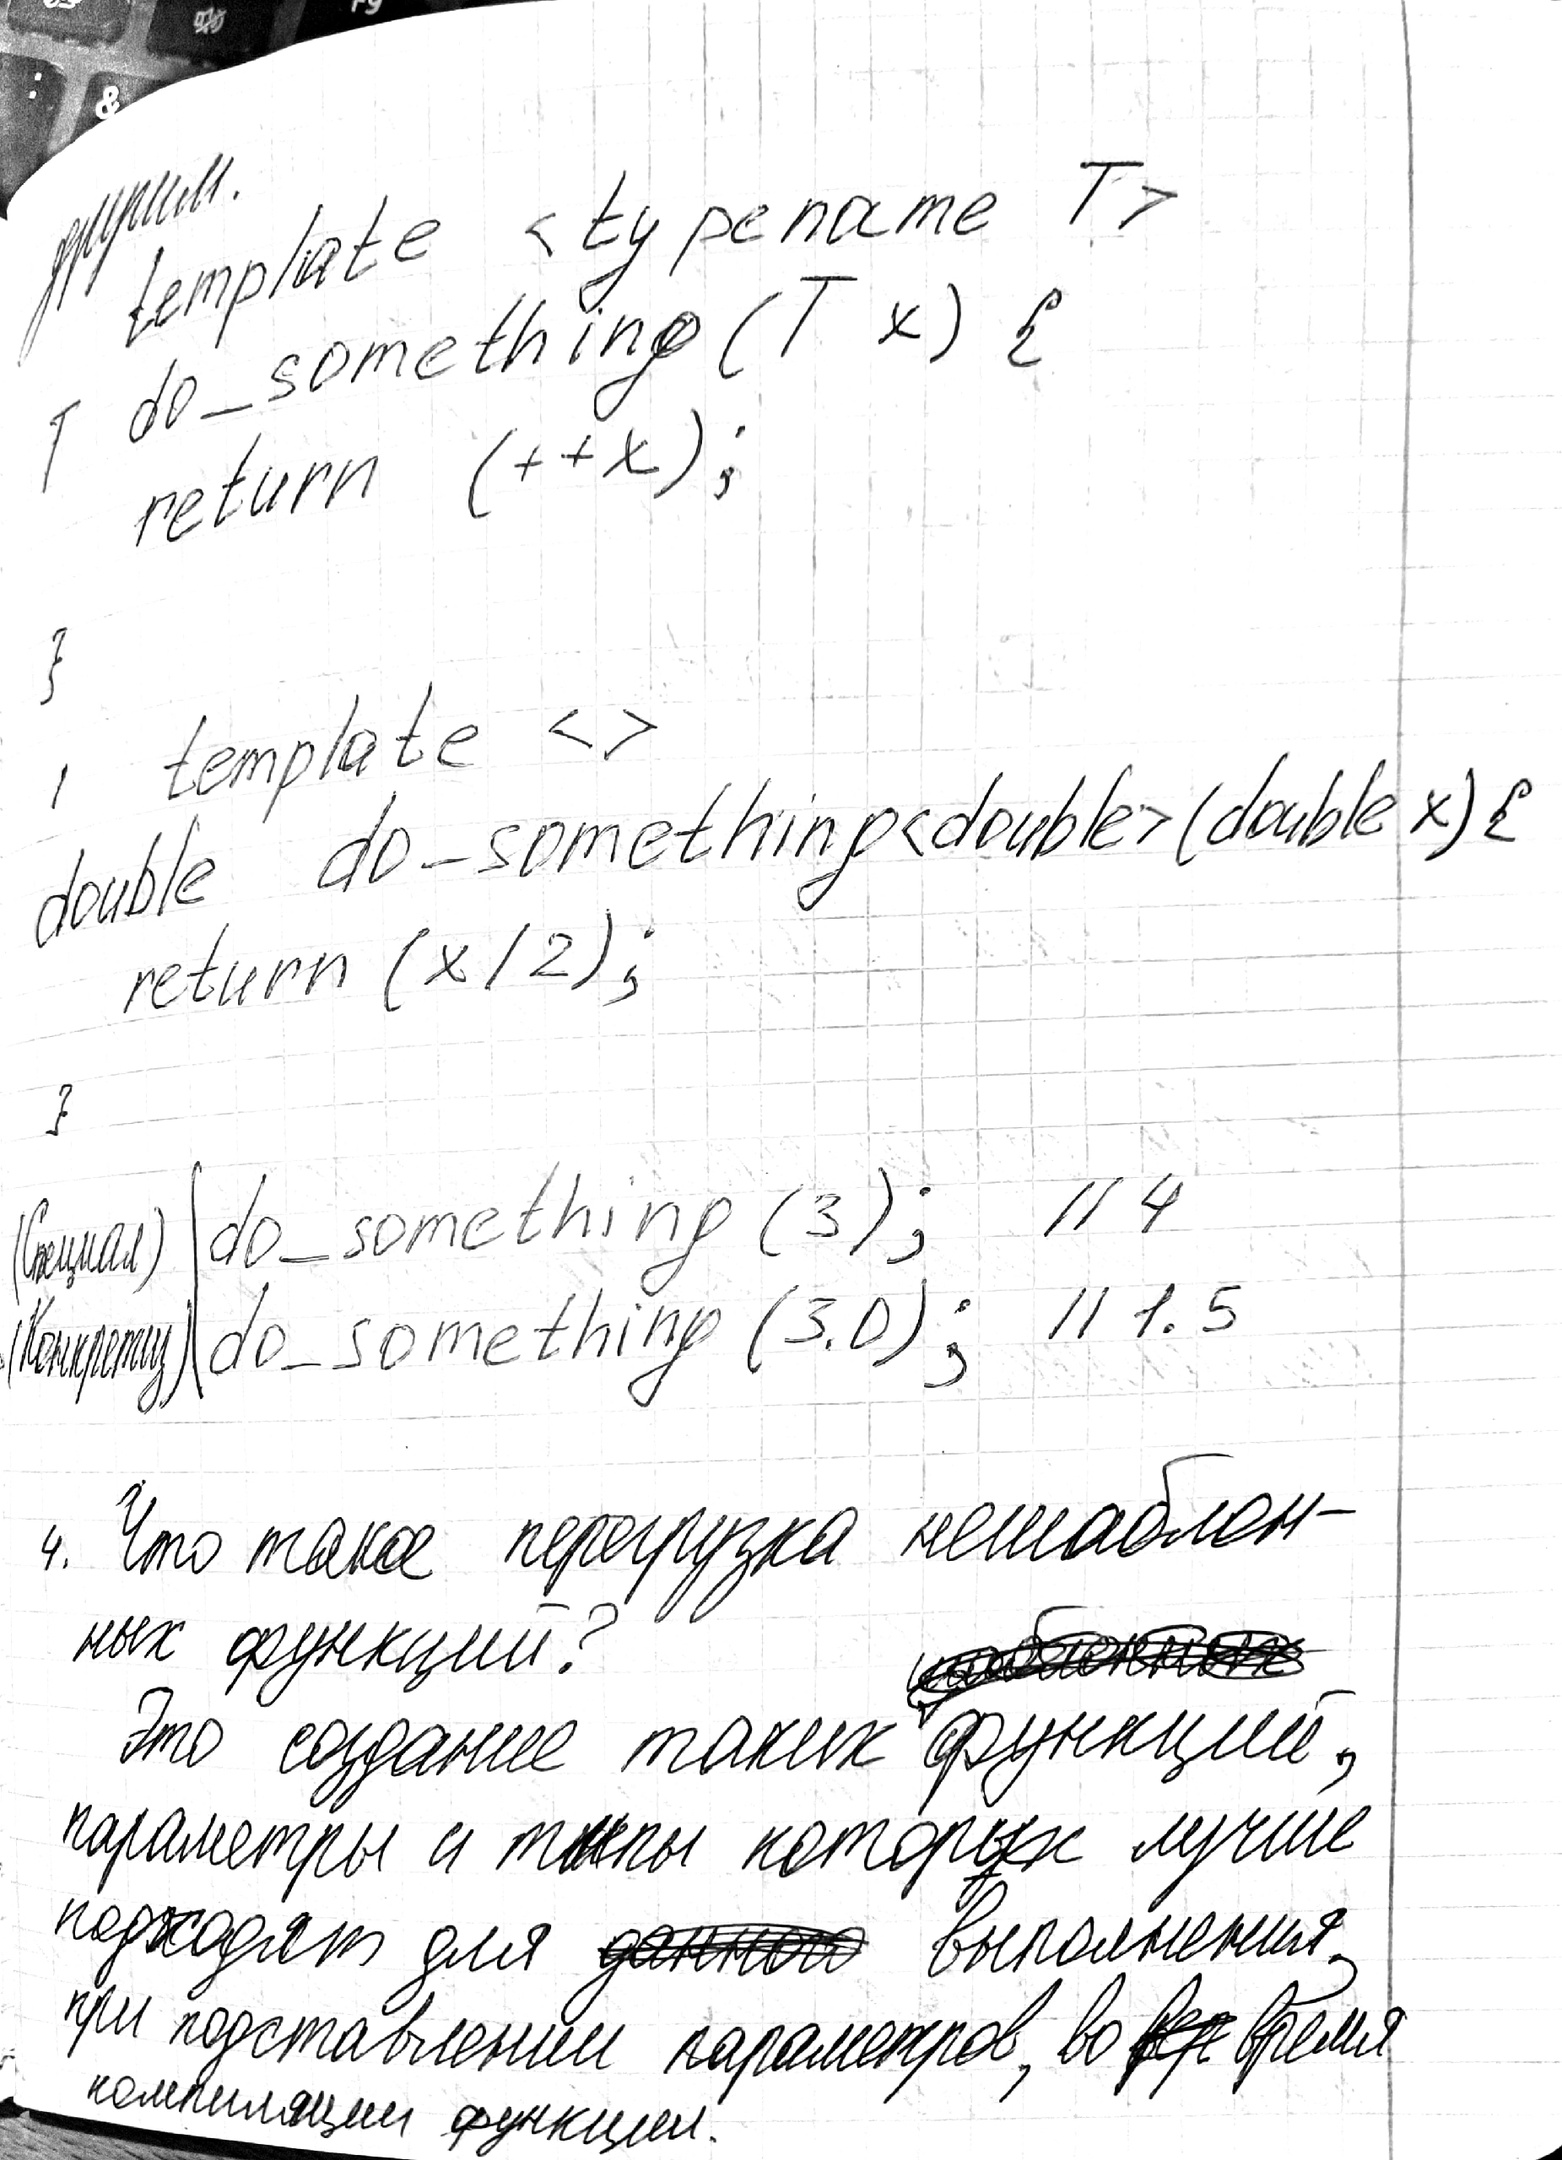 другим.
template <typename T>
T do_something (T x) {
return (++x);
}
template <>
double do_something<double> (double x) {
return (x/2);
}
(Специал) do_something (3); // 4
(Конкретиз) do_something (3.0); // 1.5
4. Что такое перегрузка нешаблон-
ных функций?
Это создание таких функций,
параметры и типы которых лучше
подходят для выполнения,
при подставлении параметров, во время
компиляции функции.